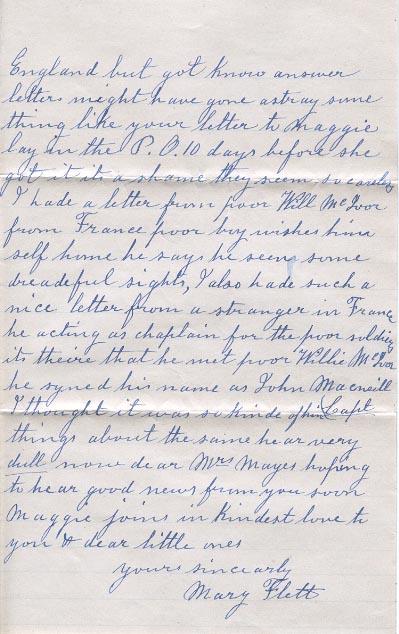 England but got know answer
letters might have gone astray some
thing like your letter to Maggie
lay in the P.O. 10 days before she
got it its a shame they seem so careless
I hade a letter from poor Will McIvor
from France poor boy wishes him
self home he says he seen some
dreadeful sights, I also hade such a
nice letter from a stranger in France
he acting as chaplain for the poor soldiers
its theire that he met poor Willie McIvor
he syned his name as John Macneill
I thought it was so kinde of him Capt.
things about the same hear very
dull now dear Mrs Mayes hoping
to hear good news from you soon
Maggie joins in kindest love to
you & dear little ones
yours sincearly
Mary Flett